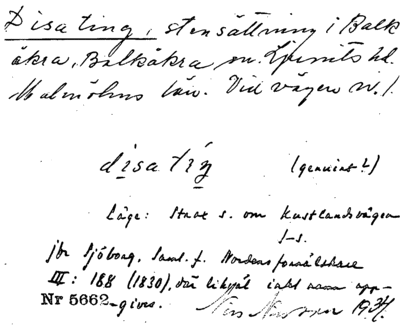 Disating, stensättning i Balk
åkra, Balkåkra sn. Ljunits hd.
Malmöhus län. Vid vägen n. f.
disatiŋ (genuint?)
Läge: Strax s. om kustlandsvägen
J-s.
jfr Sjöborg, Saml. f. Nordens fornälskare
III: 188 (1830), där likväl intet namn app-
Nr 5662 -gives. 1934.